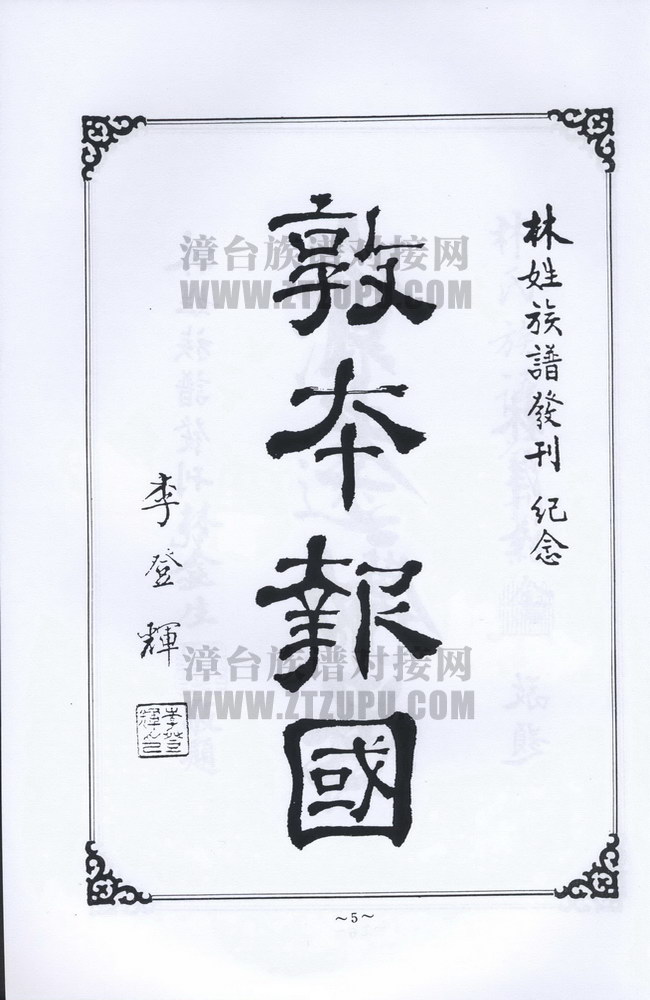 林姓族譜發刊 紀念
敦本報國
李登輝
漳台族谱对接网
WWW.ZTZUPU.COM
漳台族谱对接网
WWW.ZTZUPU.COM
~5~